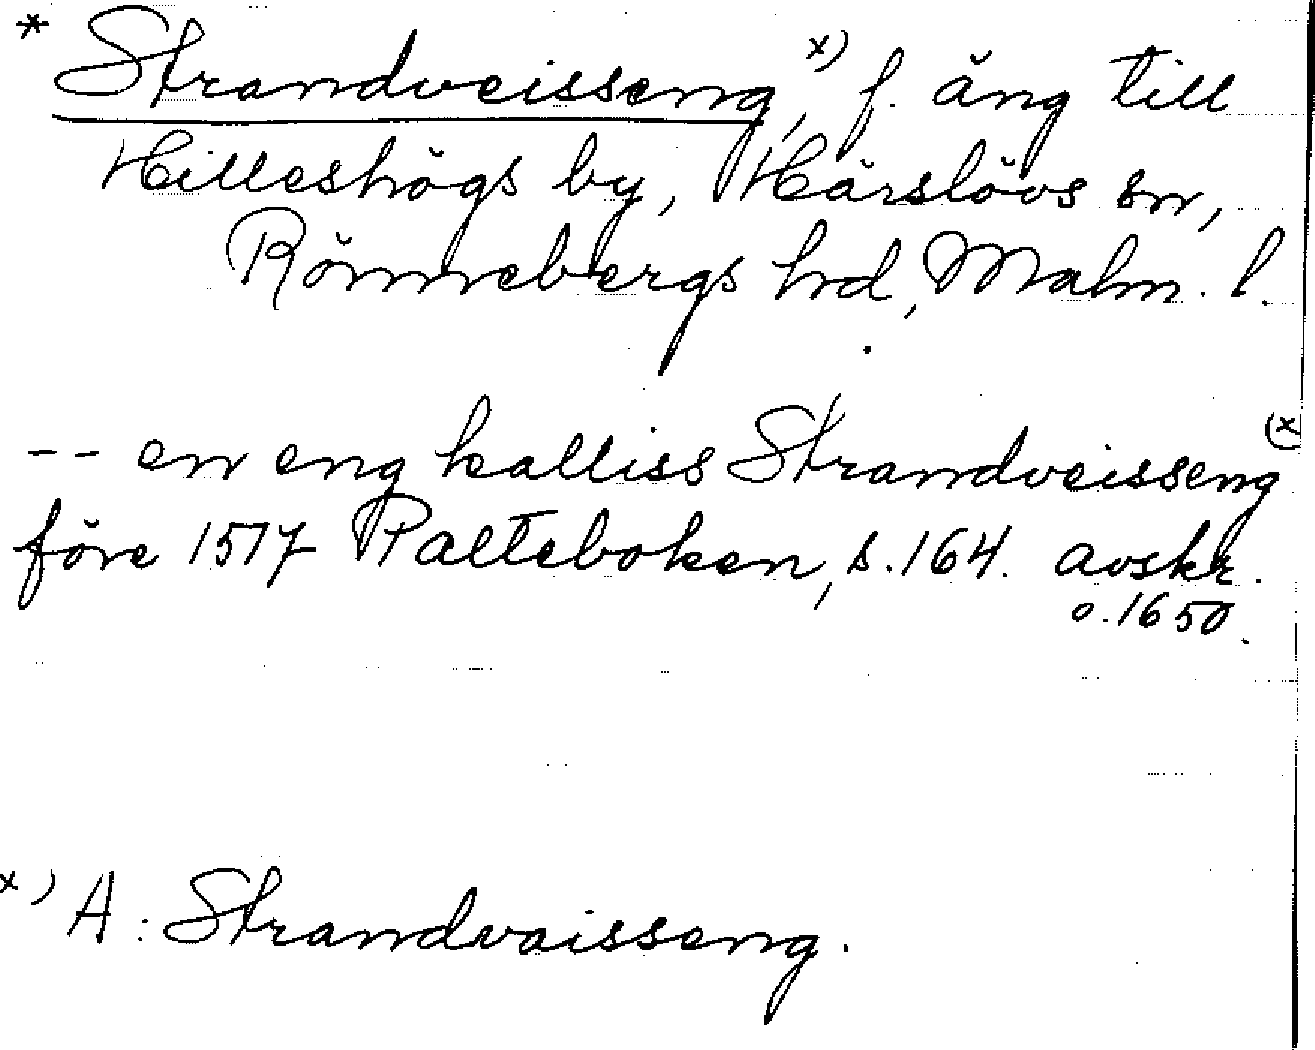 * Strandveisseng, x) f. äng till
Hilleshögs by, Härslövs sn,
Rönnebergs hrd, Malm. l.
-- en eng kalliss Strandveisseng (x
före 1517 Palteboken, s. 164. avskr.
o. 1650.
x) A: Strandvaisseng.